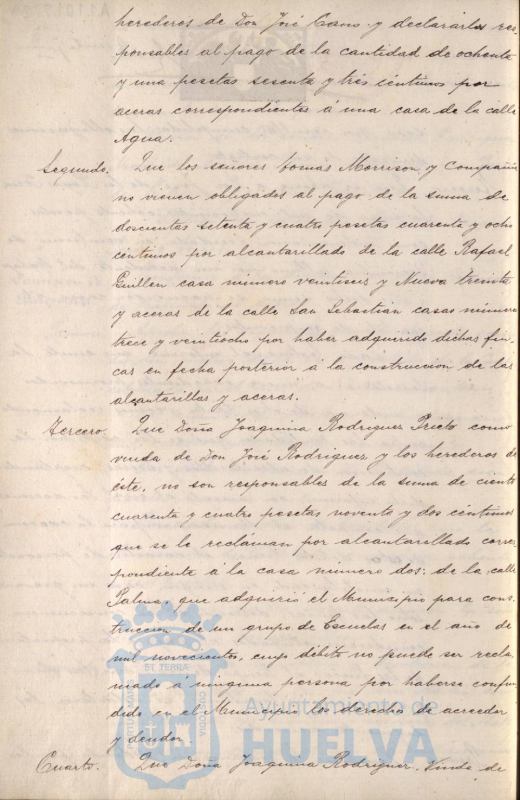 herederos de Don José Cano y declararlos res-
ponsables al pago de la cantidad de ochenta
y una pesetas sesenta y tres céntimos por
aceras correspondientes á una casa de la calle
Agua.
Segundo. Que los señores Tomás Morrison y Compañía
no vienen obligados al pago de la suma de
doscientas setenta y cuatro pesetas cuarenta y ocho
céntimos por alcantarillado de la calle Rafael
Guillen casa número veintiseis y Nueva treinta
y aceras de la calle San Sebastian casas número
trece y veintiocho por haber adquirido dichas fin-
cas en fecha posterior á la construccion de las
alcantarillas y aceras.
Tercero. Que Doña Joaquina Rodriguez Prieto como
viuda de Don José Rodriguez y los herederos de
éste, no son responsables de la suma de ciento
cuarenta y cuatro pesetas noventa y dos céntimos
que se le reclaman por alcantarillado corres-
pondiente á la casa número dos de la calle
Palma, que adquirió el Municipio para cons-
truccion de un grupo de Escuelas en el año de
mil novecientos, cuyo débito no puede ser recla-
mado á ninguna persona por haberse confun-
dido en el Municipio los derechos de acreedor
y deudor.
Cuarto. Que Doña Joaquina Rodriguez, Viuda de
ET TERRA
CUSTODIA
Ayuntamiento de
HUELVA